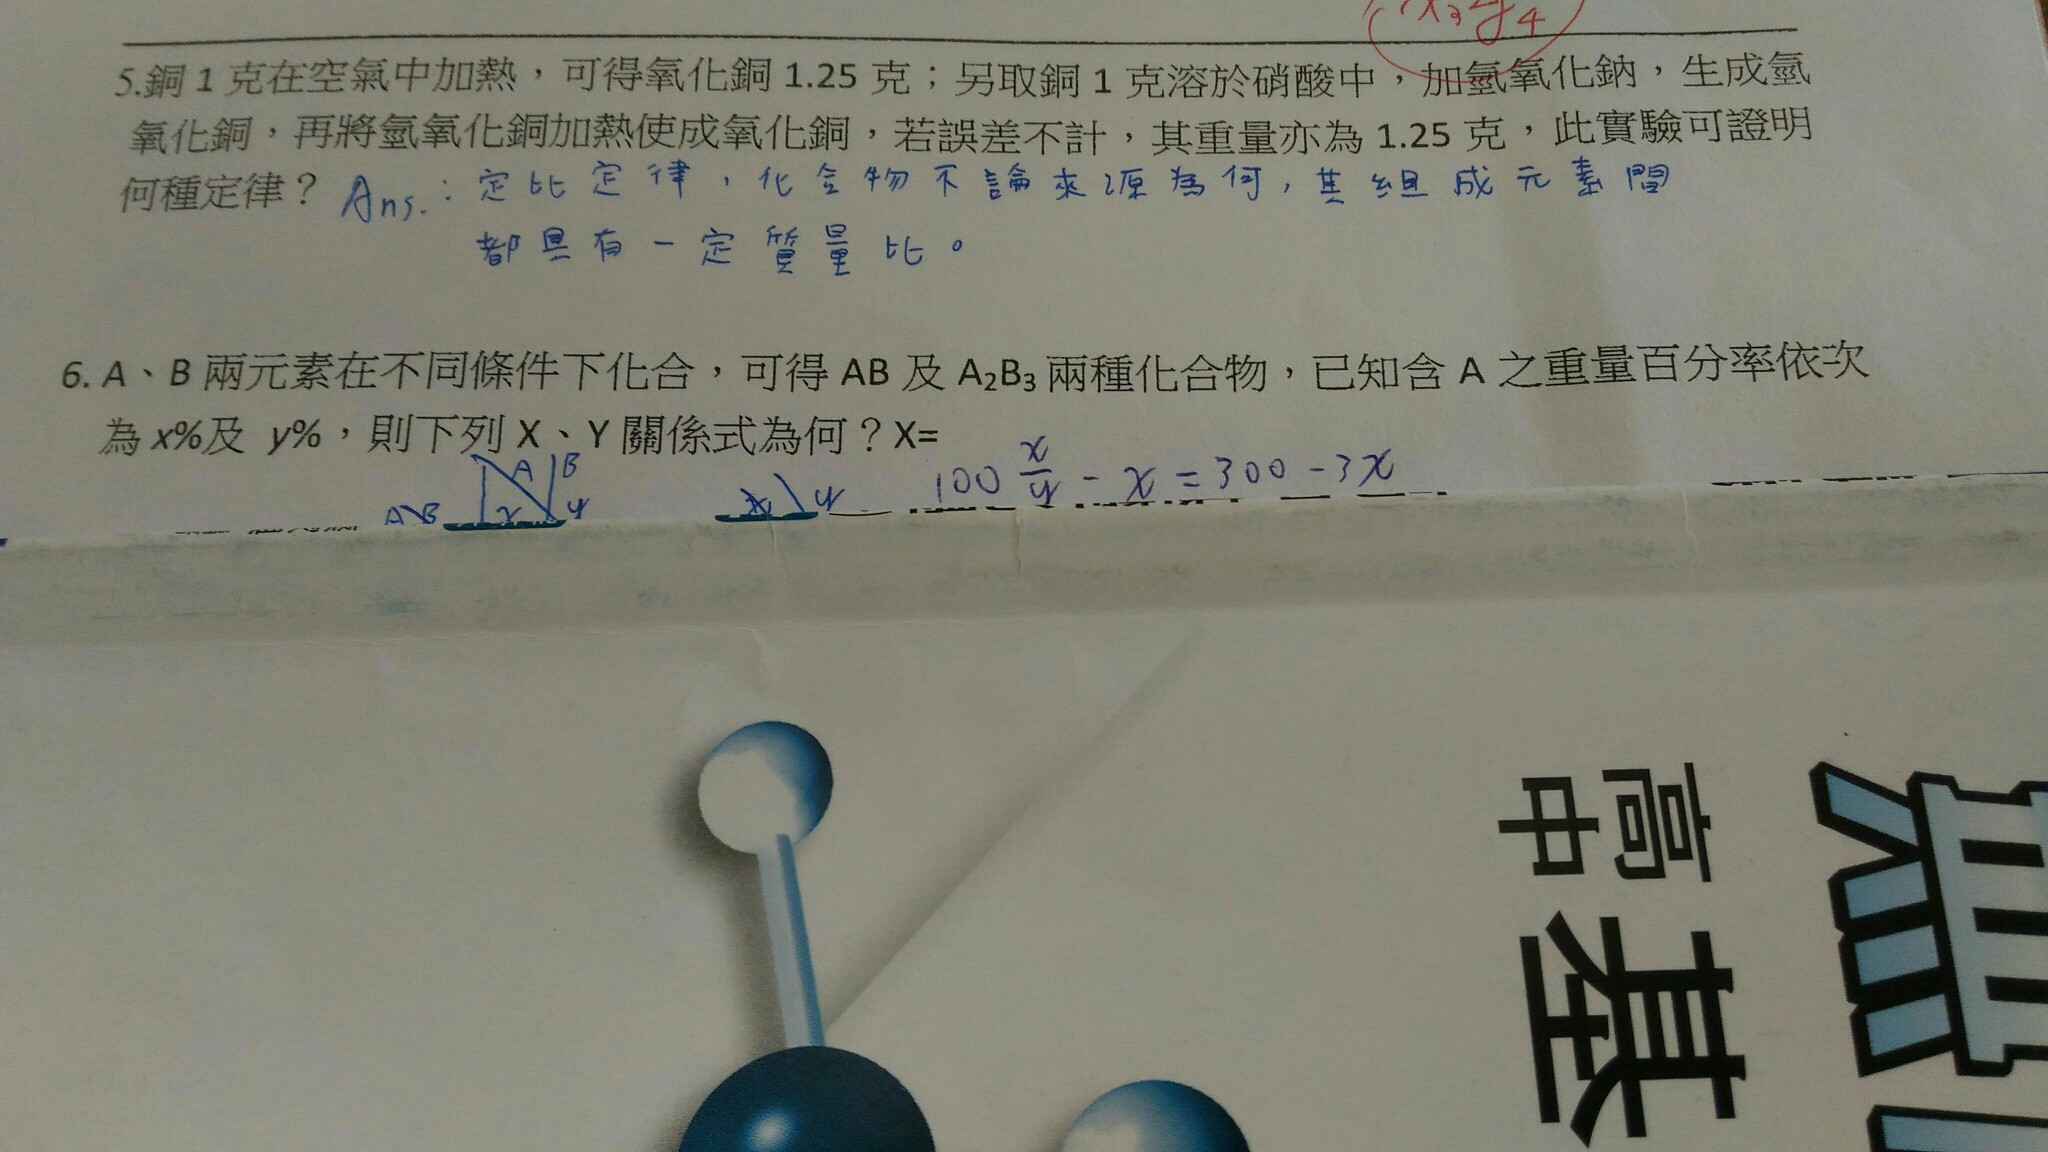 5.銅 1 克在空氣中加熱，可得氧化銅 1.25 克；另取銅 1 克溶於硝酸中，加氫氧化鈉，生成氫
氧化銅，再將氫氧化銅加熱使成氧化銅，若誤差不計，其重量亦為 1.25 克，此實驗可證明
何種定律？ Ans.：定比定律，化合物不論來源為何，其組成元素間
都具有一定質量比。
6. A、B 兩元素在不同條件下化合，可得 AB 及 A₂B₃ 兩種化合物，已知含 A 之重量百分率依次
為 x%及 y%，則下列 X、Y 關係式為何？X=
A B
100 x/y - x = 300 - 3x
AB x y
高中
基